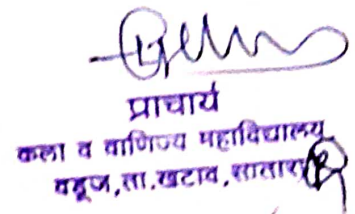 प्राचार्य
कला व वाणिज्य महाविद्यालय
वडूज, ता. खटाव, सातारा